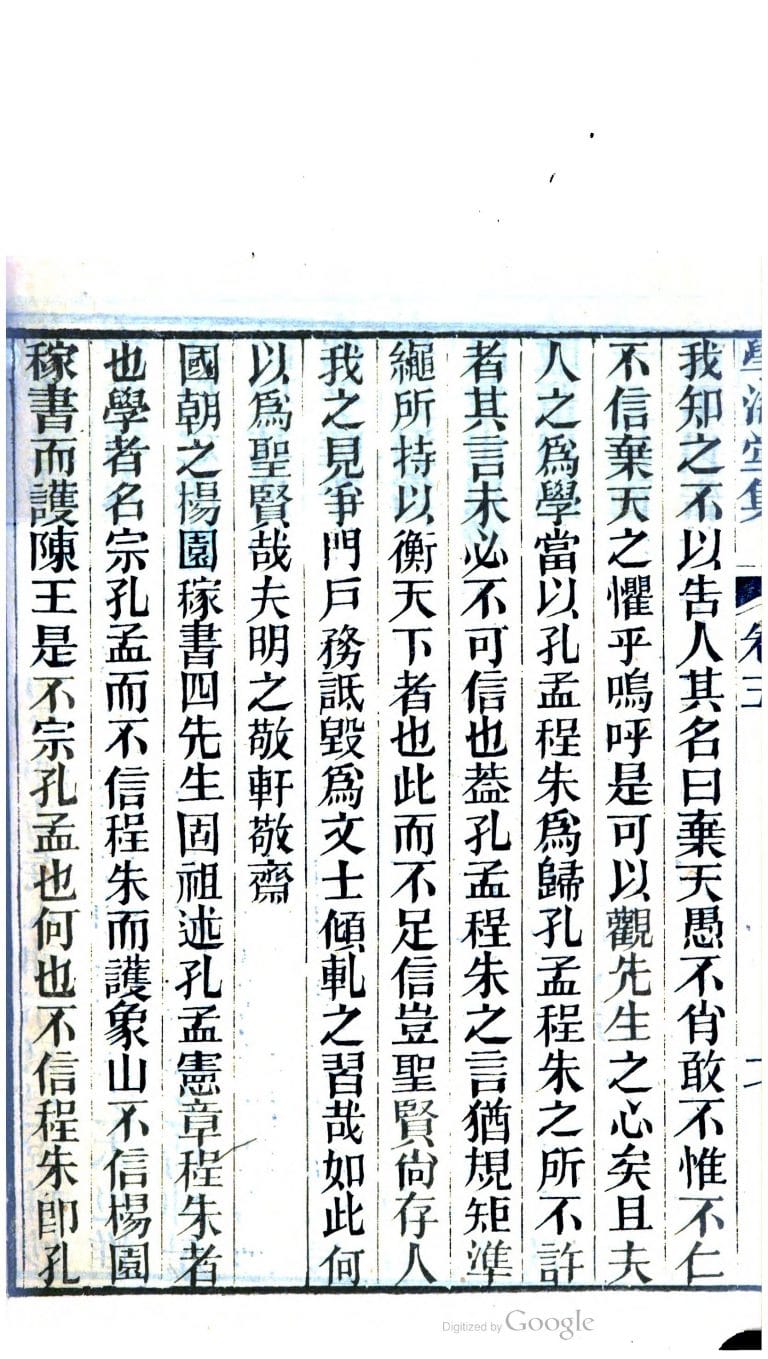 學海堂集 卷三
我知之不以告人其名曰棄天愚不肖敢不惟不仁
不信棄天之懼乎嗚呼是可以觀先生之心矣且夫
人之爲學當以孔孟程朱爲歸孔孟程朱之所不許
者其言未必不可信也葢孔孟程朱之言猶規矩準
繩所持以衡天下者也此而不足信豈聖賢尙存人
我之見爭門戸務詆毀爲文士傾軋之習哉如此何
以爲聖賢哉夫明之敬軒敬齋
國朝之楊園稼書四先生固祖述孔孟憲章程朱者
也學者名宗孔孟而不信程朱而護象山不信楊園
稼書而護陳王是不宗孔孟也何也不信程朱卽孔
Digitized by Google